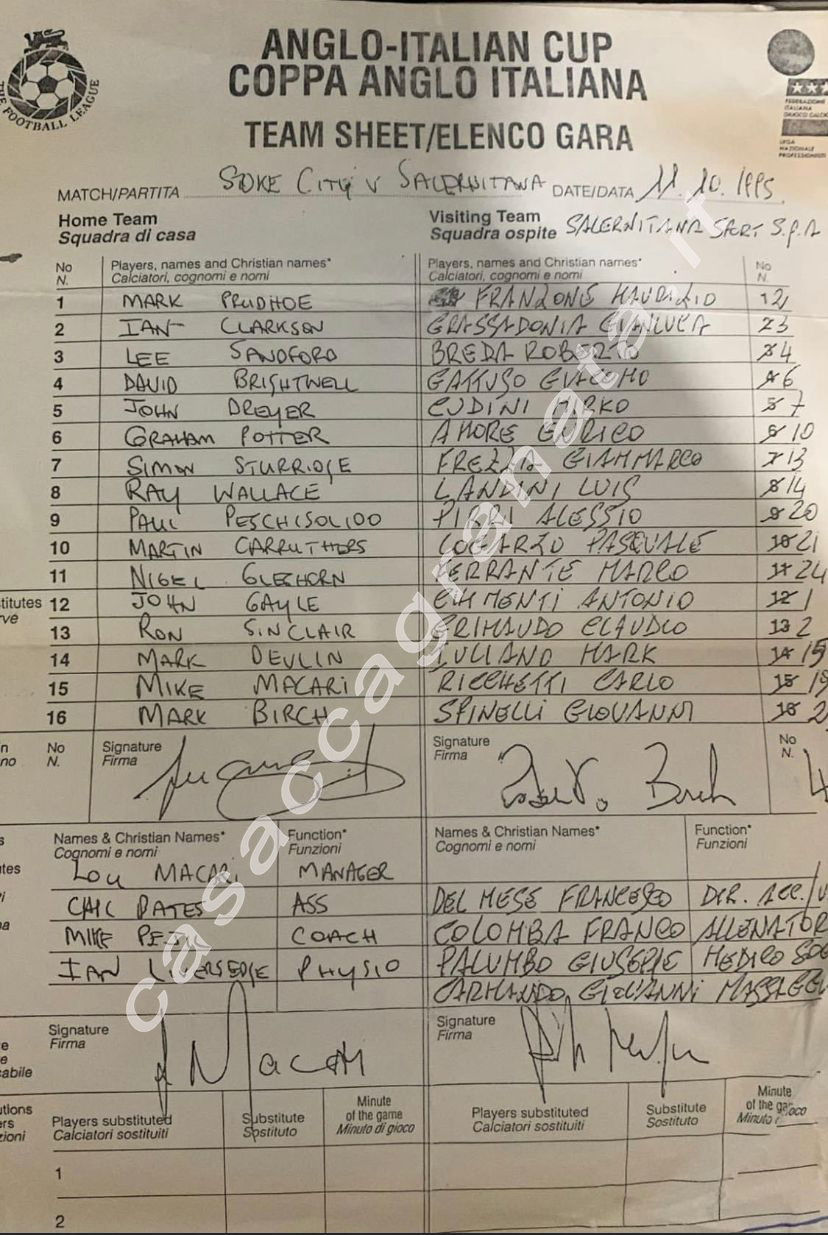 ANGLO-ITALIAN CUP
COPPA ANGLO ITALIANA
THE FOOTBALL LEAGUE
FEDERAZIONE
ITALIANA
GIUOCO CALCIO
LEGA
NAZIONALE
PROFESSIONISTI
TEAM SHEET/ELENCO GARA
MATCH/PARTITA STOKE CITY V SALERNITANA DATE/DATA 11.10.1995
Home Team Visiting Team
Squadra di casa Squadra ospite SALERNITANA SPORT S.P.A
No Players, names and Christian names* Players, names and Christian names* No
N. Calciatori, cognomi e nomi Calciatori, cognomi e nomi N.
1 MARK PRUDHOE FRANZONE MAURIZIO 12
2 IAN CLARKSON GRASSADONIA GIANLUCA 3
3 LEE SANDFORD BREDA ROBERTO 4
4 DAVID BRIGHTWELL GATTUSO GIACOMO 6
5 JOHN DREYER CUDINI MIRKO 7
6 GRAHAM POTTER AMORE ENRICO 10
7 SIMON STURRIDGE FREZZA GIAMMARCO 13
8 RAY WALLACE LANDINI LUIS 14
9 PAUL PESCHISOLIDO PIRRI ALESSIO 20
10 MARTIN CARRUTHERS LOGARZO PASQUALE 21
11 NIGEL GLEGHORN FERRANTE MARCO 24
titutes 12 JOHN GAYLE CHIMENTI ANTONIO 12 1
rve
13 RON SINCLAIR GRIMAUDO CLAUDIO 13 2
14 MARK DEVLIN IULIANO MARK 14 15
15 MIKE MACARI RICCHETTI CARLO 15 19
16 MARK BIRCH SPINELLI GIOVANNI 16 2
No Signature Signature No
N. Firma Firma N.
4
Names & Christian Names* Function* Names & Christian Names* Function*
Cognomi e nomi Funzioni Cognomi e nomi Funzioni
LOU MACARI MANAGER
CHIC BATES ASS DEL MESE FRANCESCO DIR. ACC./
MIKE COACH COLOMBA FRANCO ALLENATOR
IAN LIVERSEDGE PHYSIO PALUMBO GIUSEPPE MEDICO SOC
CARMANDO GIOVANNI MASSAGG
Signature Signature
Firma Firma
L Macari
cabile
Players substituted Substitute Minute of the game Players substituted Substitute Minute of the game
Calciatori sostituiti Sostituto Minuto di gioco Calciatori sostituiti Sostituto Minuto gioco
1
2
casaccagranata.it